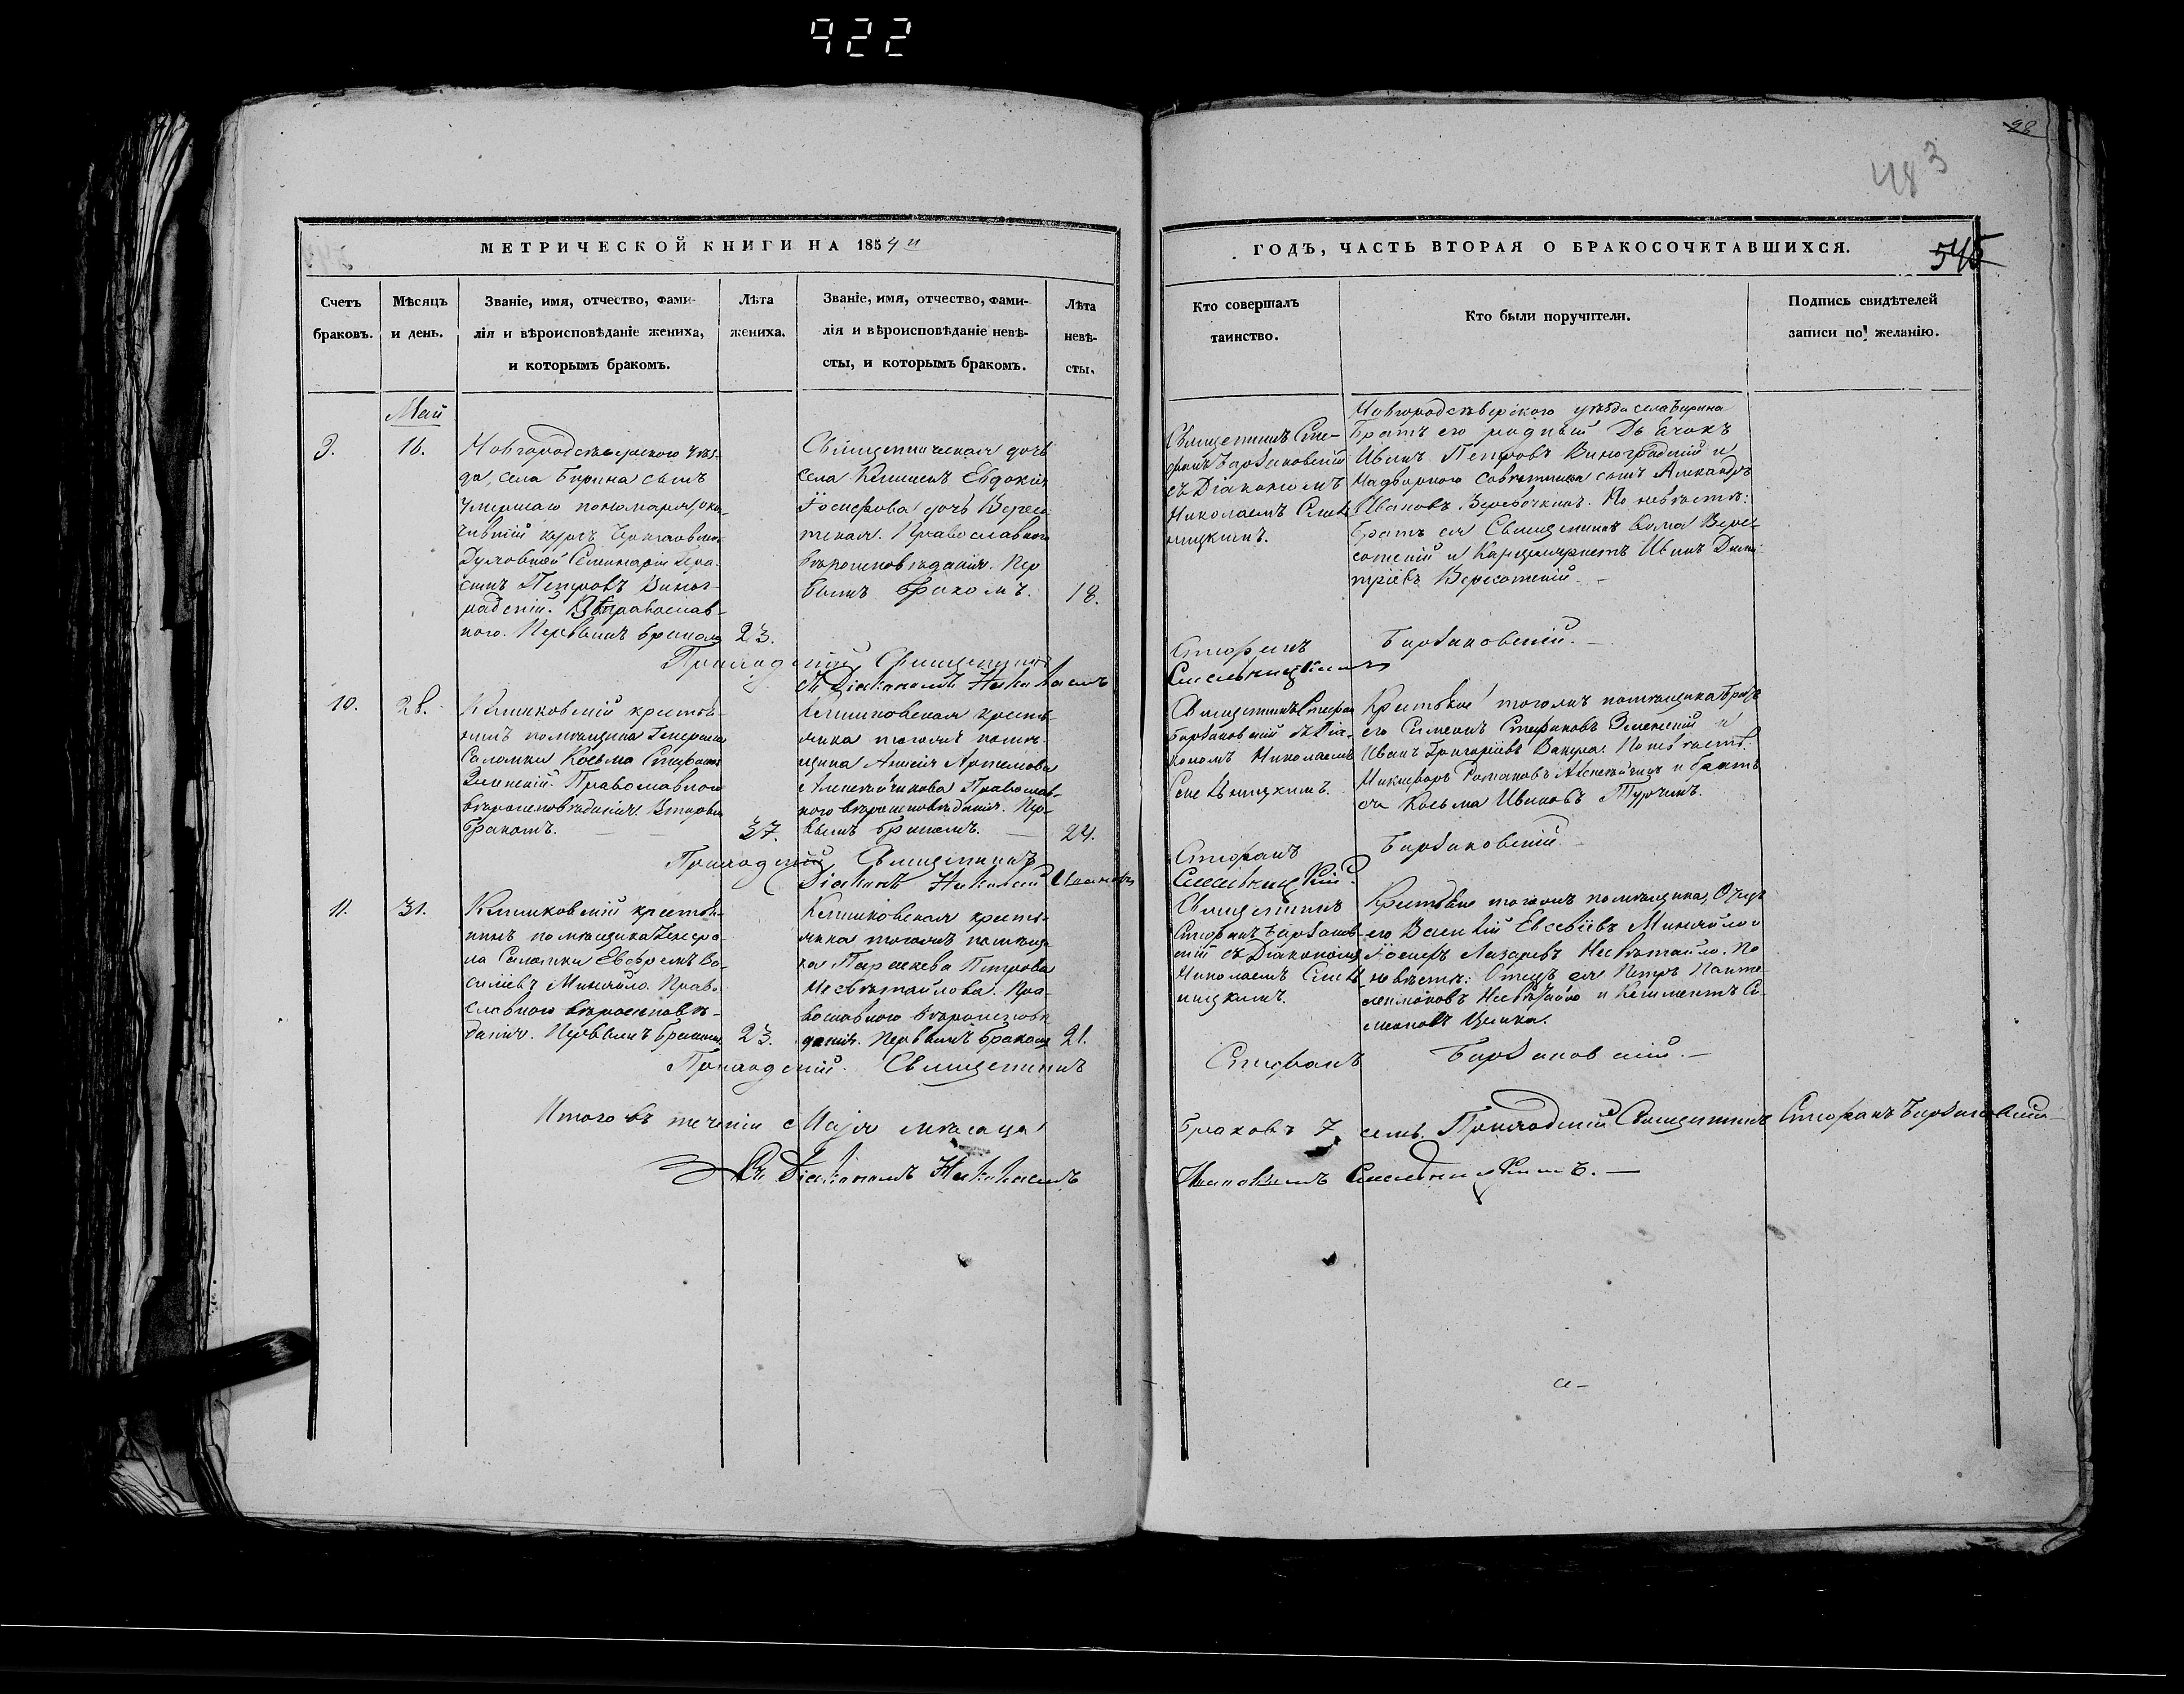 922
98
483
МЕТРИЧЕСКОЙ КНИГИ НА 1854й
ГОДЪ, ЧАСТЬ ВТОРАЯ О БРАКОСОЧЕТАВШИХСЯ.
545
Счетъ
браковъ.
Мѣсяцъ
и день.
Званіе, имя, отчество, фами-
лія и вѣроисповѣданіе жениха,
и которымъ бракомъ.
Лѣта
жениха.
Званіе, имя, отчество, фами-
лія и вѣроисповѣданіе невѣ-
сты, и которымъ бракомъ.
Лѣта
невѣ-
сты.
Кто совершалъ
таинство.
Кто были поручители.
Подпись свидѣтелей
записи по желанію.
Май
9.
16.
Новгородсѣверскаго уѣз-
да, села Бирина сынъ
умершаго пономаря, окон-
чившій курсъ Черниговской
Духовной Семинаріи Гера-
симъ Петровъ Виног-
радскій. православ-
наго. Первымъ бракомъ
23.
Священническая дочь
села Евдокія
Іосифова дочь Верес-
Православнаго
вѣроисповѣданія. Пер
вымъ бракомъ.
18.
Священникъ Сте-
фанъ Барзаковскій
съ Діакономъ
Николаемъ
Новгородсѣверскаго уѣзда села Бирина
Братъ его родный Дьячокъ
Иванъ Петровъ Виноградскій и
Надворнаго Совѣтника сынъ Александръ
Ивановъ Веребочкинъ. По невѣстѣ:
Братъ ея Священникъ Фома Вере-
и Канцеляристъ Иванъ Дими
тріевъ
Приходскій Священникъ
Стефанъ Барзаковскій.
съ Діакономъ Николаемъ
10.
28.
крестья-
нинъ помѣщика Генерала
Косьма Стефановъ
Зеленскій. Православнаго
вѣроисповѣданія. Вторымъ
бракомъ.
37.
крестья-
нка тогожъ помѣ-
щика Артемова
Православ-
наго вѣроисповѣданія. Пер-
вымъ бракомъ.
24.
Священникъ Стефан
Барзаковскій съ Діа-
кономъ Николаемъ
Крестьяне тогожъ помѣщика Братъ
его Симеонъ Стефановъ Зеленскій и
Иванъ Григоріевъ Вакула. По невѣстѣ:
Никифоръ Романовъ и братъ
ея Косьма Ивановъ Турчинъ.
Приходскій Священникъ
Стефанъ Барзаковскій
Діаконъ Николай Ивановъ
11.
31.
крестья-
нинъ помѣщика Генера-
ла Ефремъ Ва-
силіевъ Михайло. Право-
славнаго вѣроисповѣ-
данія. Первымъ бракомъ.
23.
крестья-
нка тогожъ помѣщи-
ка Параскева Петрова
Несвѣтайлова. Пра-
вославнаго вѣроисповѣ
данія. Первымъ бракомъ
21.
Священникъ
Стефанъ Барзаков-
скій съ Діакономъ
Николаемъ
Крестьяне тогожъ помѣщика, Отецъ
его Василій Евсевіевъ Михайло и
Іосифъ Лазаревъ Несвѣтайло. По
невѣстѣ: Отецъ ея Петръ Панте-
леимоновъ Несвѣтайло и Климентъ Си-
меоновъ
Приходскій Священникъ
Стефанъ Барзаковскій.
Итого въ теченіи Маія мѣсяца
Браковъ 7 семь. Приходскій Священникъ Стефанъ Барзаковскій
Съ Діакономъ Николаемъ
Ивановымъ